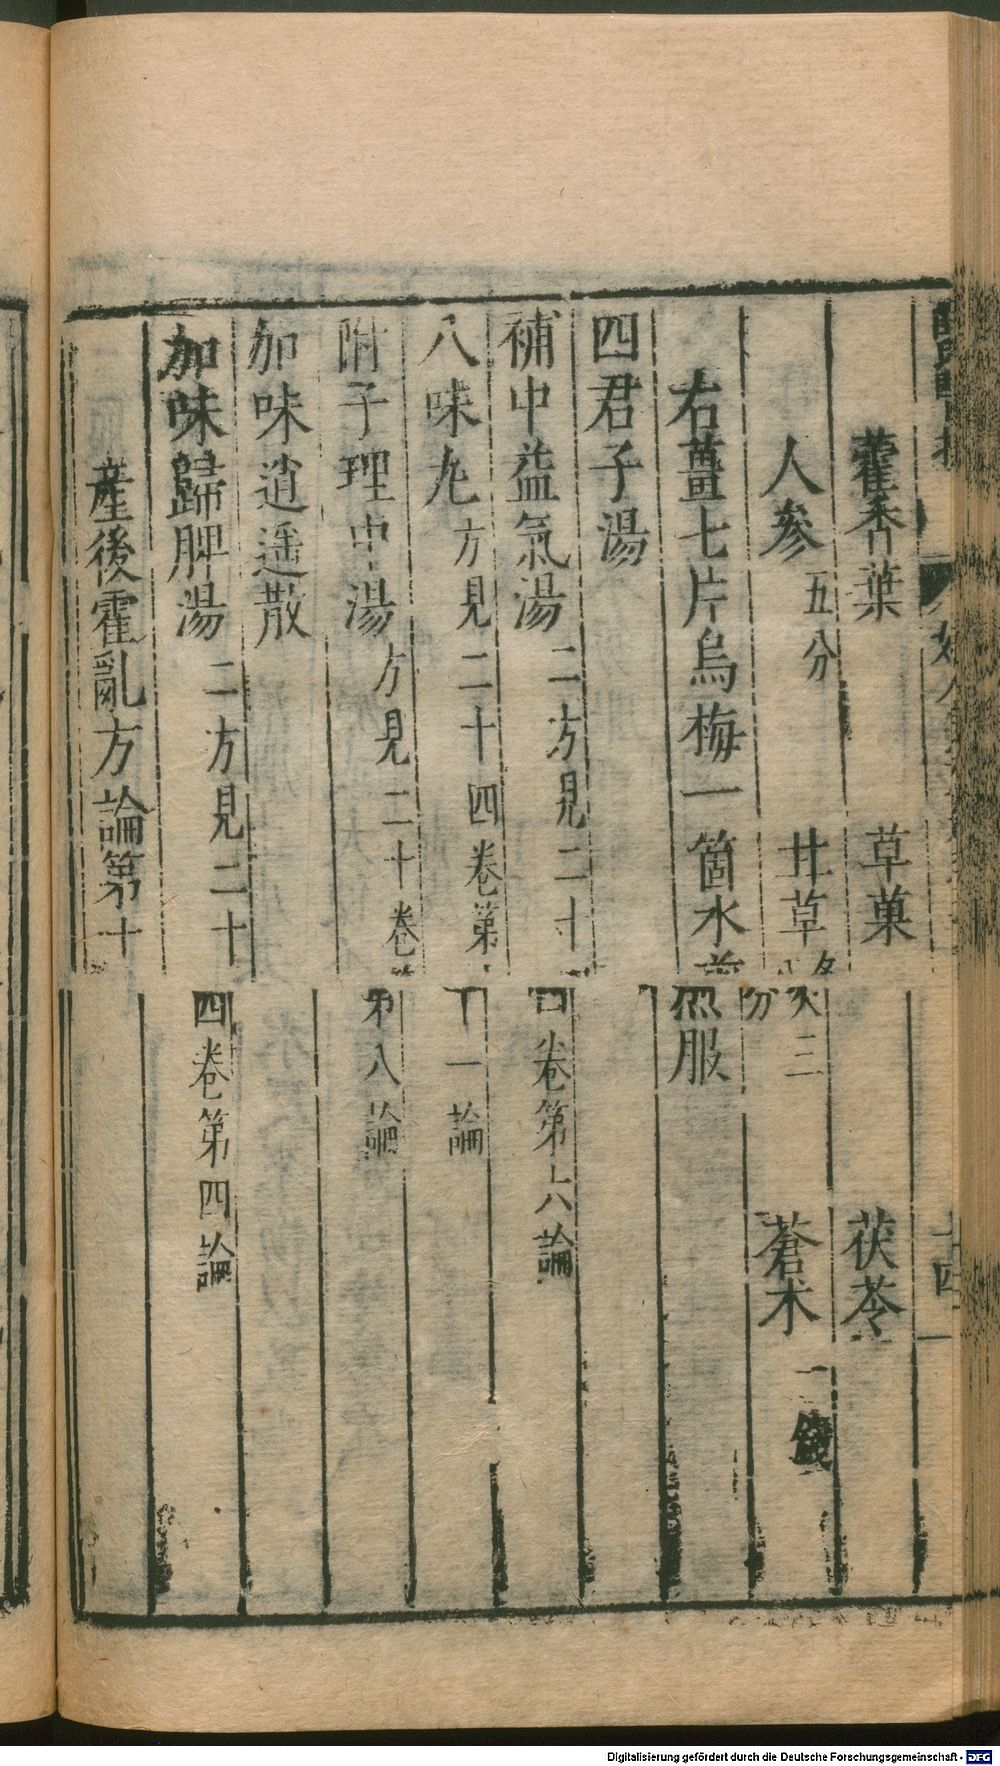 藿香葉 草菓 茯苓
人參五分 甘草各三分 蒼术一錢
右薑七片烏梅一箇水煎服
四君子湯
補中益氣湯二方見二十四卷第六論
八味丸方見二十四卷第十一論
附子理中湯方見二十卷第八論
加味逍遥散
加味歸脾湯二方見二十四卷第四論
産後霍亂方論第十
十四
Digitalisierung gefördert durch die Deutsche Forschungsgemeinschaft - DFG